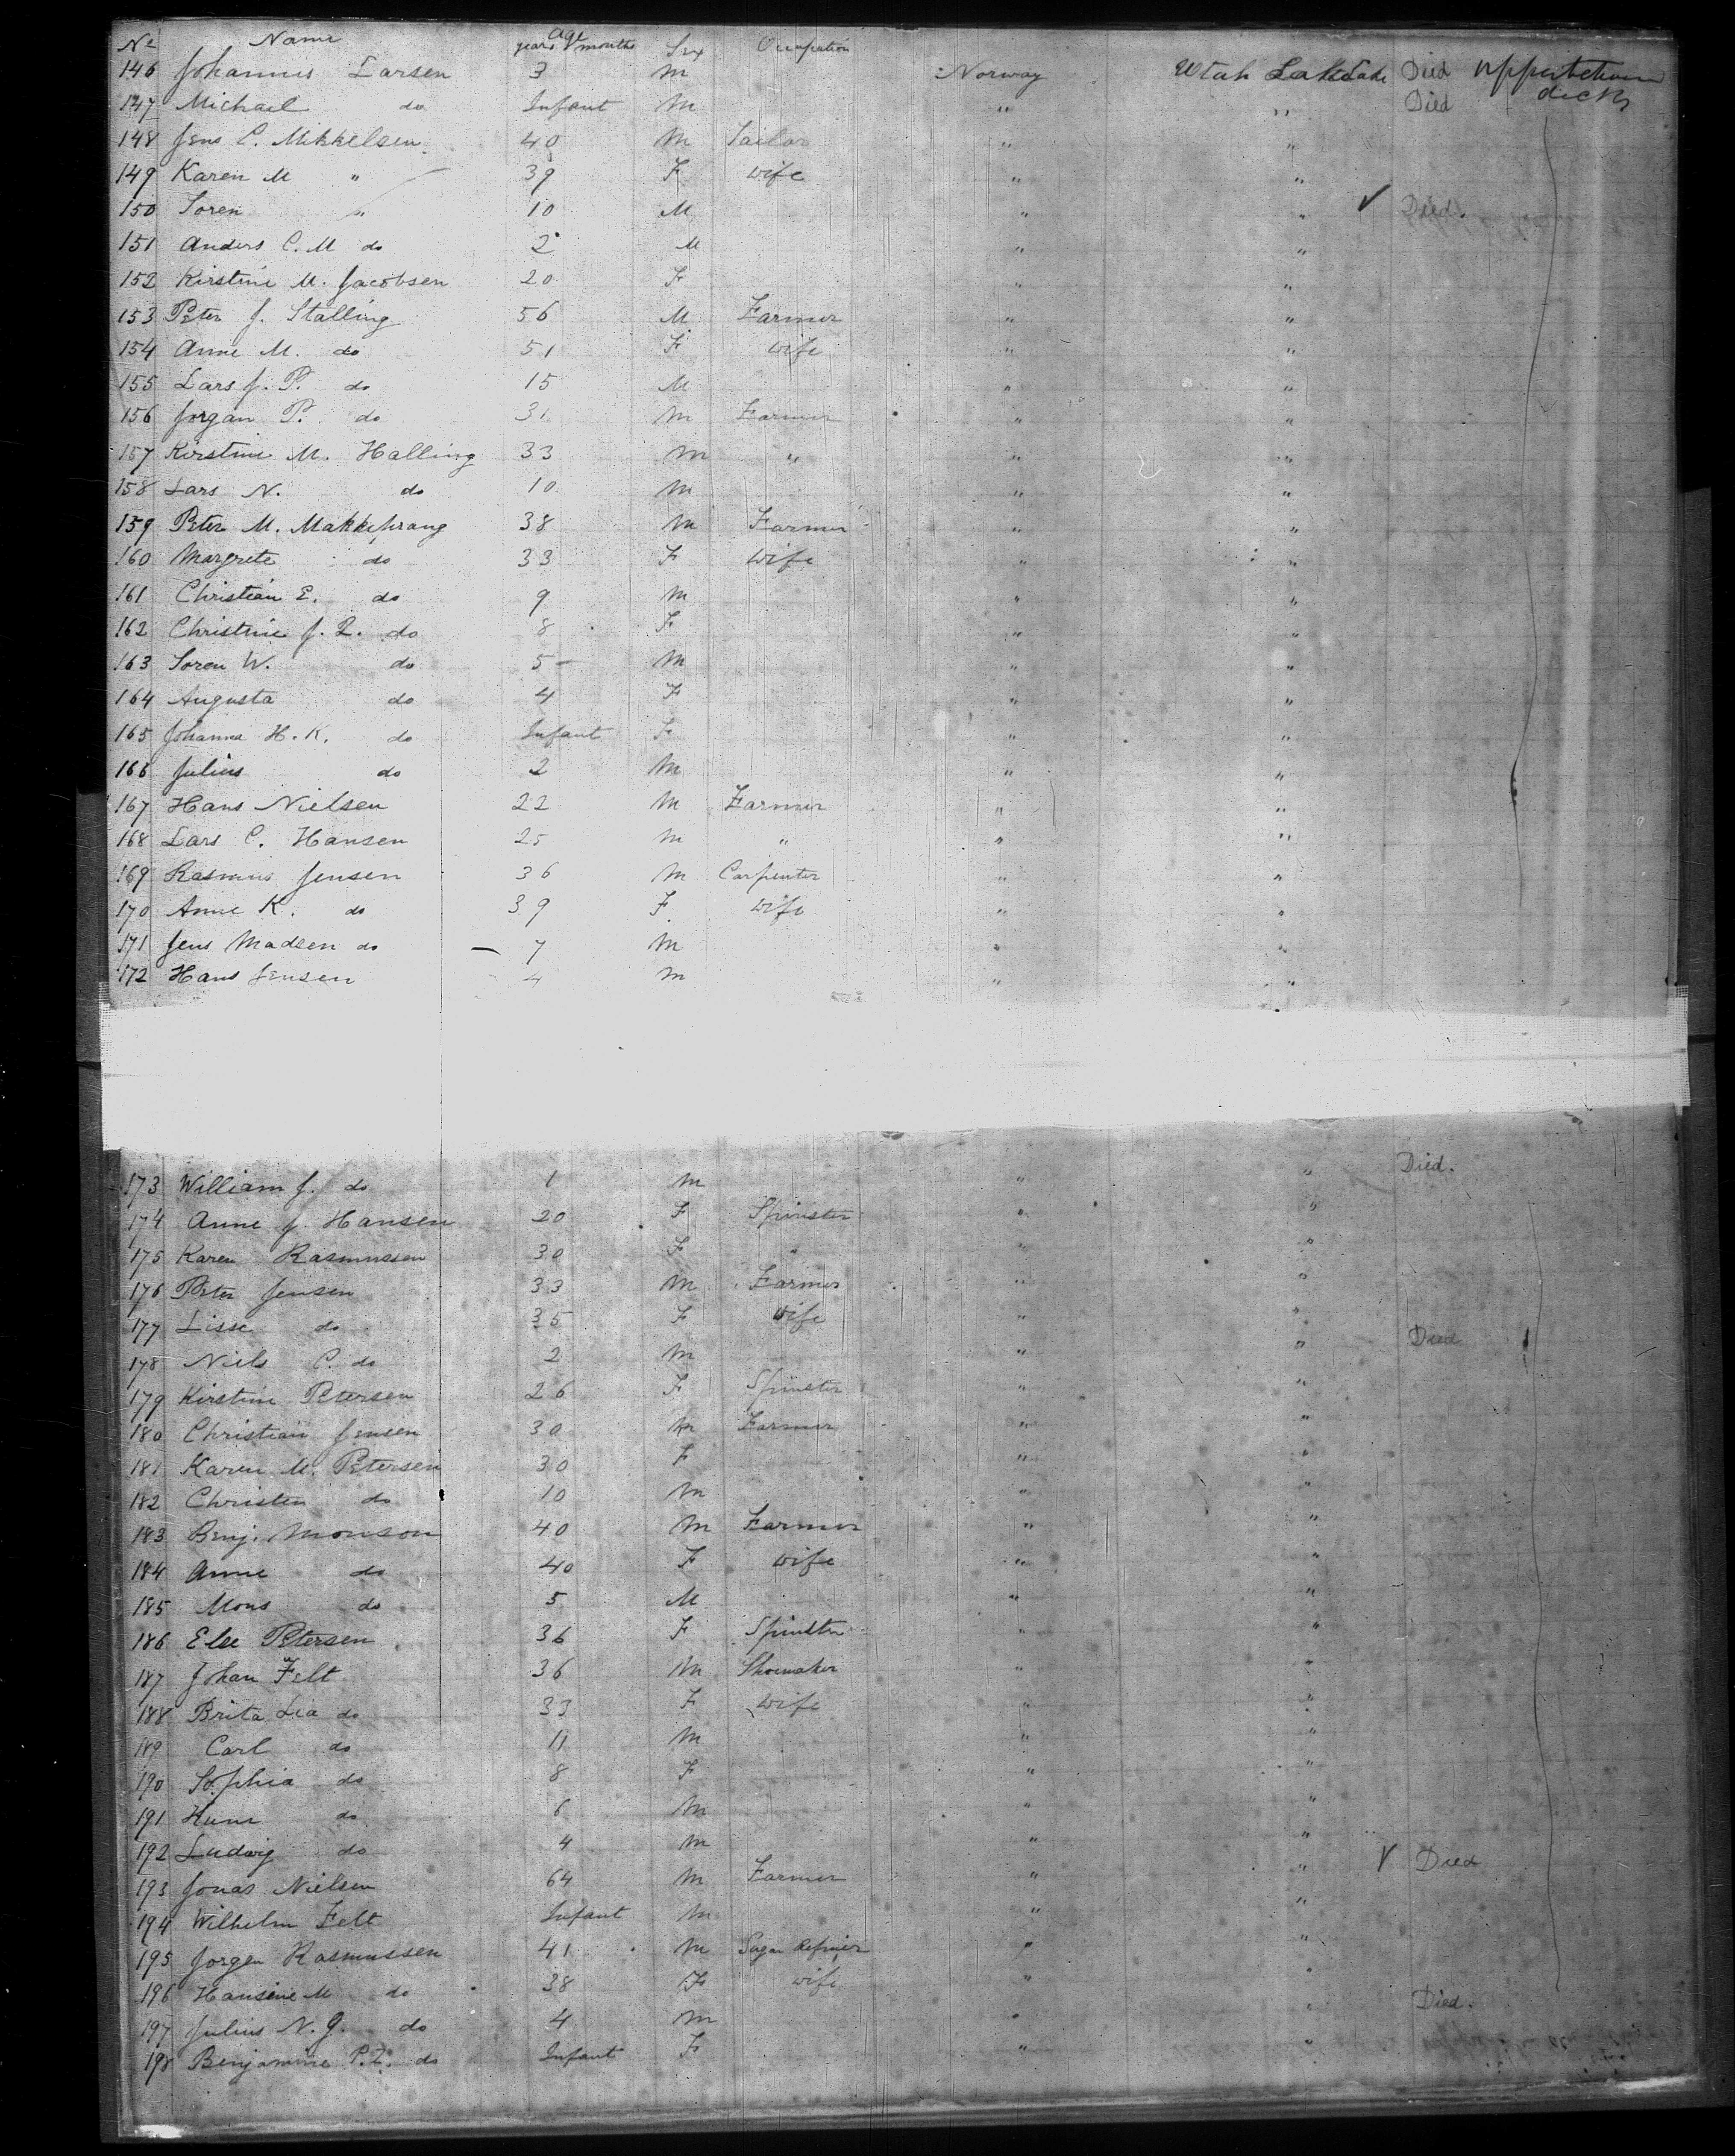 No Name Age years months Sex Occupation
146 Johannes Larsen 3 M Norway Utah Lake Died upper between
147 Michael do Infant M " " Died decks
148 Jens C. Mikkelsen 40 M Tailor " "
149 Karen M " 39 F wife " "
150 Soren " 10 M " " ✓ Died.
151 Anders C. M do 2 M " "
152 Kirstine M. Jacobsen 20 F " "
153 Peter J. Stalling 56 M Farmer " "
154 Anne M. do 51 F wife " "
155 Lars J. P. do 15 M " "
156 Jorgan P. do 31 M Farmer " "
157 Kirstine M. Halling 33 M " " "
158 Lars N. do 10 M " "
159 Peter M. Makkeprang 38 M Farmer " "
160 Margrete do 33 F wife " "
161 Christian E. do 9 M " "
162 Christine J. L. do 8 F " "
163 Soren W. do 5 M " "
164 Augusta do 4 F " "
165 Johanna H. K. do Infant F " "
166 Julius do 2 M " "
167 Hans Nielsen 22 M Farmer " "
168 Lars C. Hansen 25 M " " "
169 Rasmus Jensen 36 M Carpenter " "
170 Anne K. do 39 F. wife " "
171 Jens Madsen do 7 M " "
172 Hans Jensen 4 M " "
173 William J. do 1 M " " Died.
174 Anne J. Hansen 20 F Spinster " "
175 Karen Rasmussen 30 F " " "
176 Peter Jensen 33 M Farmer " "
177 Lisse do 35 F wife " "
178 Niels C. do 2 M " " Died
179 Kirstine Petersen 26 F Spinster " "
180 Christian Jensen 30 M Farmer " "
181 Karen M. Petersen 30 F " "
182 Christen do 10 M " "
183 Benj. Monson 40 M Farmer " "
184 Anne do 40 F wife " "
185 Mons do 5 M " "
186 Else Petersen 36 F Spinster " "
187 Johan Felt 36 M Shoemaker " "
188 Brita Lia do 33 F wife " "
189 Carl do 11 M " "
190 Sophia do 8 F " "
191 do 6 M " "
192 Ludwig do 4 M " "
193 Jonas Nielsen 64 M Farmer " " ✓ Died
194 Wilhelm Felt Infant M " "
195 Jorgen Rasmussen 41 M Sugar Refiner " "
196 Hansine M do 38 F wife " "
197 Julius N. J. do 4 M " " Died.
198 Benjamine P. Z. do Infant F " "